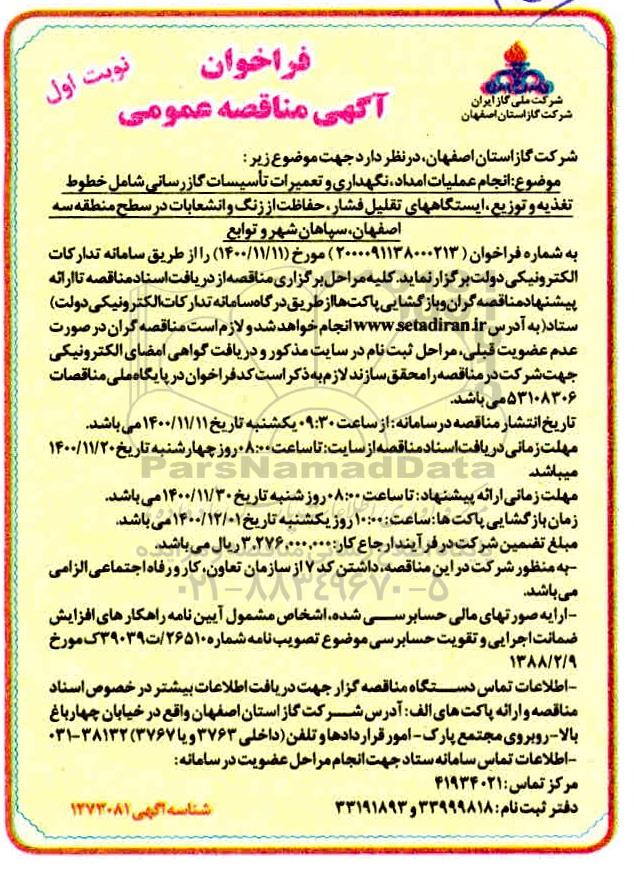 فراخوان
آگهی مناقصه عمومی
نوبت اول
شرکت ملی گاز ایران
شرکت گاز استان اصفهان
شرکت گاز استان اصفهان، در نظر دارد جهت موضوع زیر:
موضوع: انجام عملیات امداد، نگهداری و تعمیرات تأسیسات گازرسانی شامل خطوط
تغذیه و توزیع، ایستگاههای تقلیل فشار، حفاظت از زنگ و انشعابات در سطح منطقه سه
اصفهان، سپاهان شهر و توابع
به شماره فراخوان (۲۰۰۰۰۹۱۱۳۸۰۰۰۲۱۳) مورخ (۱۴۰۰/۱۱/۱۱) را از طریق سامانه تدارکات
الکترونیکی دولت برگزار نماید. کلیه مراحل برگزاری مناقصه از دریافت اسناد مناقصه تا ارائه
پیشنهاد مناقصه گران و بازگشایی پاکت ها از طریق درگاه سامانه تدارکات الکترونیکی دولت)
ستاد(به آدرس www.setadiran.ir انجام خواهد شد و لازم است مناقصه گران در صورت
عدم عضویت قبلی، مراحل ثبت نام در سایت مذکور و دریافت گواهی امضای الکترونیکی
جهت شرکت در مناقصه را محقق سازند لازم به ذکر است کد فراخوان در پایگاه ملی مناقصات
۵۳۱۰۸۳۰۶ می باشد.
تاریخ انتشار مناقصه در سامانه: از ساعت ۰۹:۳۰ یکشنبه تاریخ ۱۴۰۰/۱۱/۱۱ می باشد.
مهلت زمانی دریافت اسناد مناقصه از سایت: تا ساعت ۰۸:۰۰ روز چهارشنبه تاریخ ۱۴۰۰/۱۱/۲۰
میباشد.
ParsNamadData
مهلت زمانی ارائه پیشنهاد: تا ساعت ۰۸:۰۰ روز شنبه تاریخ ۱۴۰۰/۱۱/۳۰ می باشد.
زمان بازگشایی پاکت ها: ساعت: ۱۰:۰۰ روز یکشنبه تاریخ ۱۴۰۰/۱۲/۰۱ می باشد.
مبلغ تضمین شرکت در فرآیند ارجاع کار: ۳.۲۷۶.۰۰۰.۰۰۰ ریال می باشد.
-به منظور شرکت در این مناقصه، داشتن کد ۷ از سازمان تعاون، کار و رفاه اجتماعی الزامی
می باشد.
۰۲۱-۸۸۳۴۹۶۷۰-۵
-ارایه صورتهای مالی حسابرسی شده، اشخاص مشمول آیین نامه راهکارهای افزایش
ضمانت اجرایی و تقویت حسابرسی موضوع تصویب نامه شماره ۲۶۵۱۰/ت۳۹۰۳۹ک مورخ
۱۳۸۸/۲/۹
-اطلاعات تماس دستگاه مناقصه گزار جهت دریافت اطلاعات بیشتر در خصوص اسناد
مناقصه و ارائه پاکت های الف: آدرس شرکت گاز استان اصفهان واقع در خیابان چهارباغ
بالا- روبروی مجتمع پارک- امور قراردادها و تلفن (داخلی ۳۷۶۳ و یا ۳۷۶۷) ۳۸۱۳۲-۰۳۱
-اطلاعات تماس سامانه ستاد جهت انجام مراحل عضویت در سامانه:
مرکز تماس: ۴۱۹۳۴۰۲۱
دفتر ثبت نام: ۳۳۹۹۹۸۱۸ و ۳۳۱۹۱۸۹۳
شناسه آگهی ۱۲۷۳۰۸۱